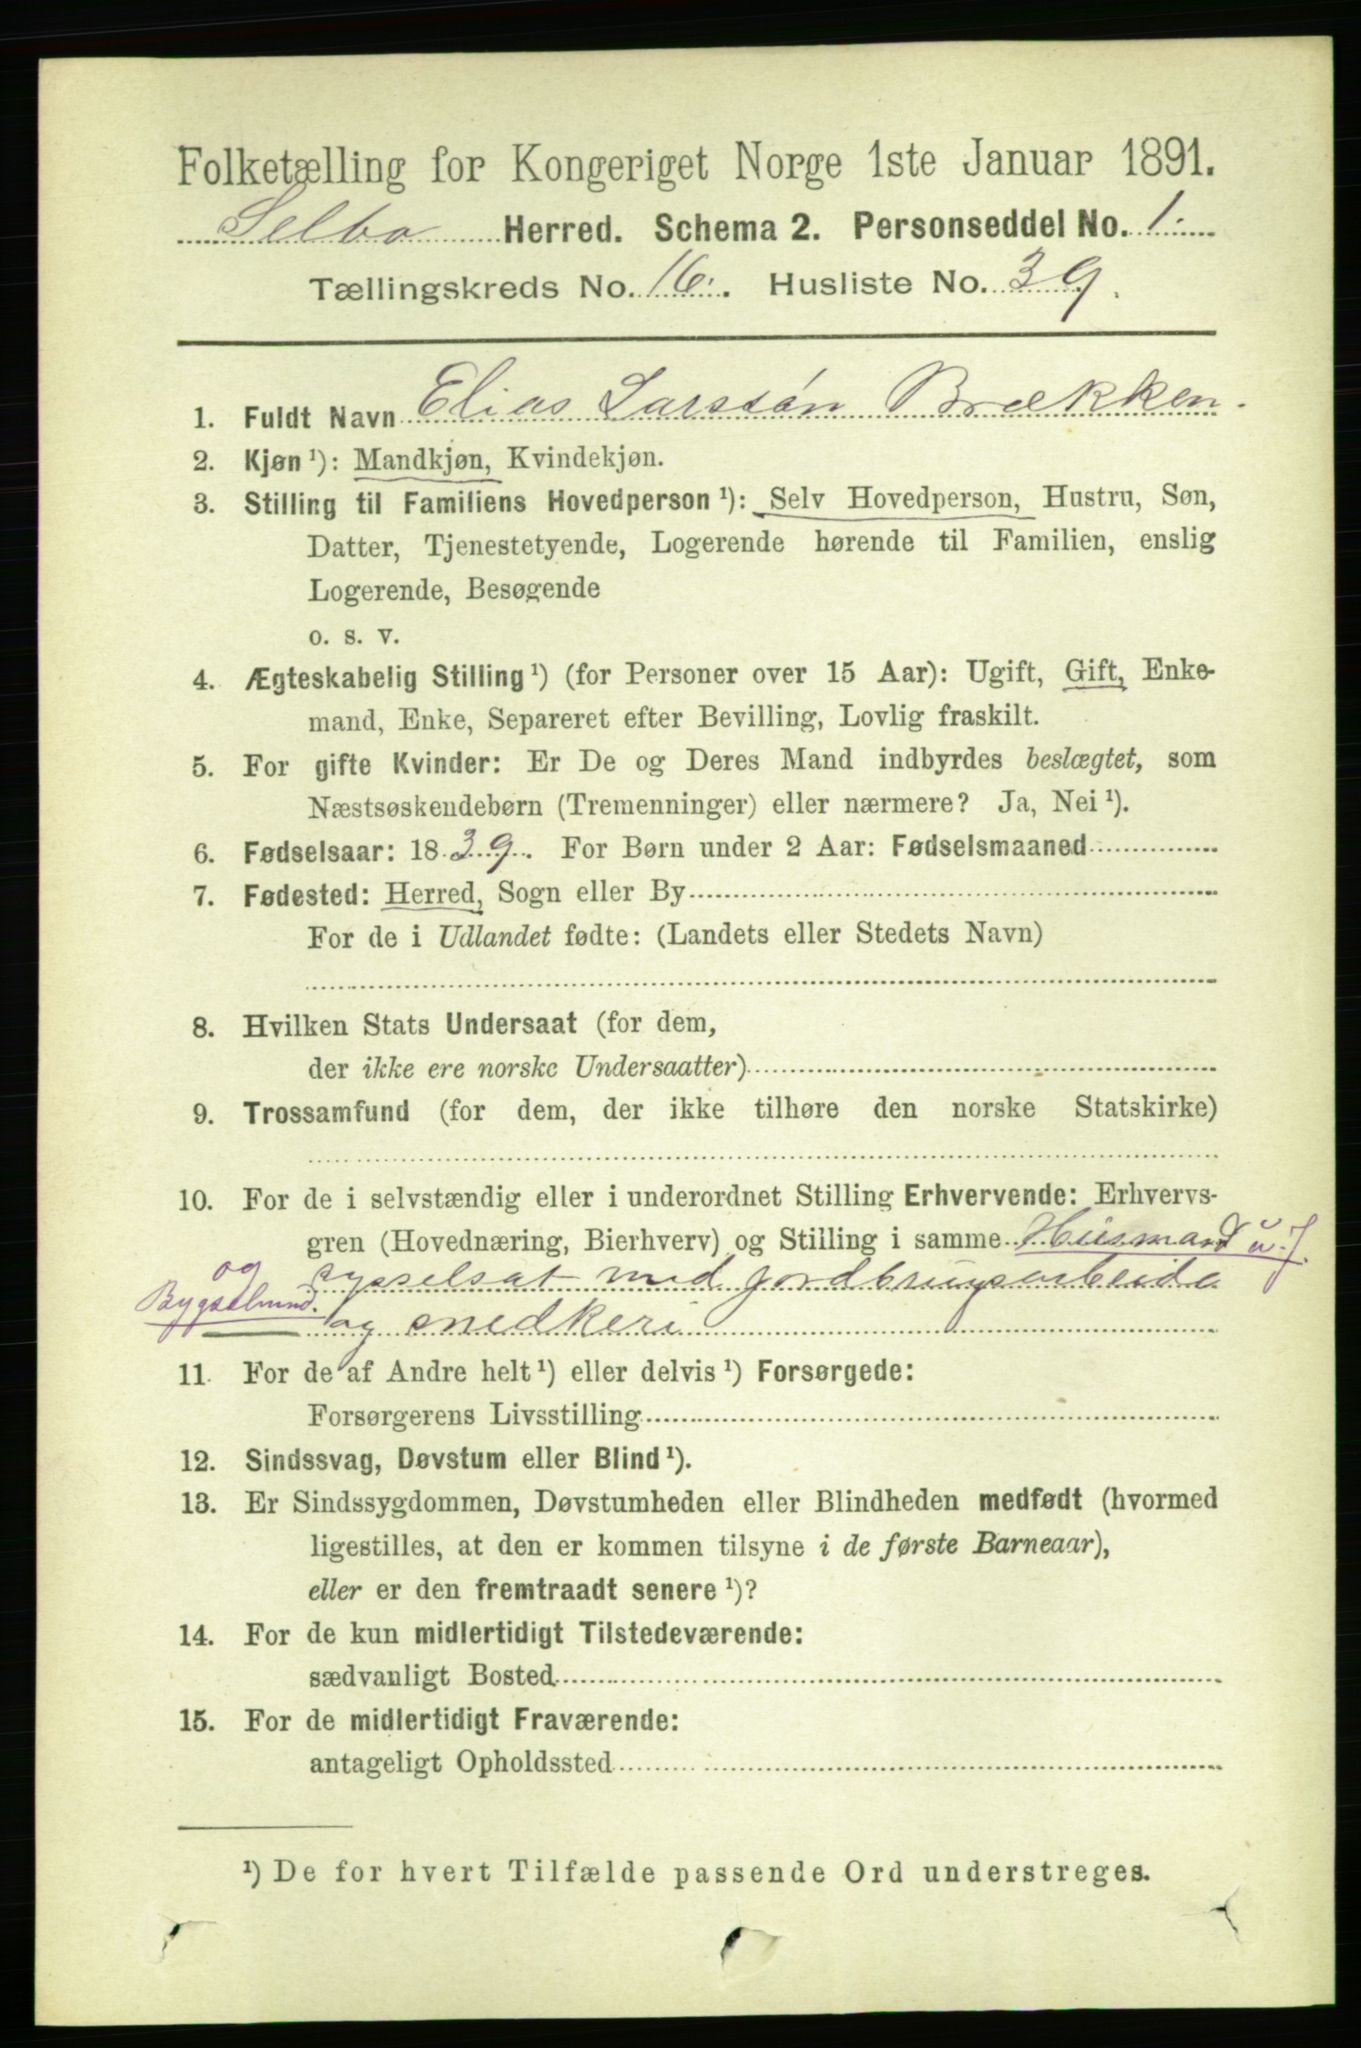 Folketælling for Kongeriget Norge 1ste Januar 1891.
Selbo Herred. Schema 2. Personseddel No. 1.
Tællingskreds No. 16. Husliste No. 39.
1. Fuldt Navn Elias Larssøn Brækken.
2. Kjøn ¹): Mandkjøn, Kvindekjøn.
3. Stilling til Familiens Hovedperson ¹): Selv Hovedperson, Hustru, Søn,
Datter, Tjenestetyende, Logerende hørende til Familien, enslig
Logerende, Besøgende
o. s. v.
4. Ægteskabelig Stilling ¹) (for Personer over 15 Aar): Ugift, Gift, Enke-
mand, Enke, Separeret efter Bevilling, Lovlig fraskilt.
5. For gifte Kvinder: Er De og Deres Mand indbyrdes beslægtet, som
Næstsøskendebørn (Tremenninger) eller nærmere? Ja, Nei ¹).
6. Fødselsaar: 1839. For Børn under 2 Aar: Fødselsmaaned
7. Fødested: Herred, Sogn eller By
For de i Udlandet fødte: (Landets eller Stedets Navn)
8. Hvilken Stats Undersaat (for dem,
der ikke ere norske Undersaatter)
9. Trossamfund (for dem, der ikke tilhøre den norske Statskirke)
10. For de i selvstændig eller i underordnet Stilling Erhvervende: Erhvervs-
gren (Hovednæring, Bierhverv) og Stilling i samme Husmand u. J.
og sysselsat med jordbrugsarbeide
og snedkeri
11. For de af Andre helt ¹) eller delvis ¹) Forsørgede:
Forsørgerens Livsstilling
12. Sindssvag, Døvstum eller Blind ¹).
13. Er Sindssygdommen, Døvstumheden eller Blindheden medfødt (hvormed
ligestilles, at den er kommen tilsyne i de første Barneaar),
eller er den fremtraadt senere ¹)?
14. For de kun midlertidigt Tilstedeværende:
sædvanligt Bosted
15. For de midlertidigt Fraværende:
antageligt Opholdssted
¹) De for hvert Tilfælde passende Ord understreges.